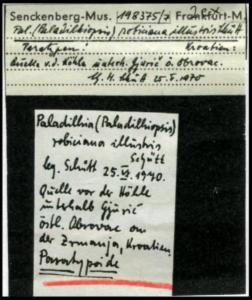 Senckenberg-Mus. 198375/7 Frankfurt-M
Pal. (Paladilhiopsis) robiciana illustris Schütt
Paratypen! Kroatien:
Quelle v. d. Höhle unterh. Gjurić ö. Obrovac.
H. Schütt 25.5.1970
Paladilhia (Paladilhiopsis)
robiciana illustris
Schütt
leg. Schütt 25. 1970.
Quelle vor der Höhle
unterhalb Gjurić
östl. Obrovac an
der Zrmanja, Kroatien.
Paratypoide